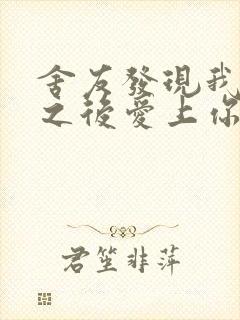 舍友發現我
之後愛上你
君笙非萍